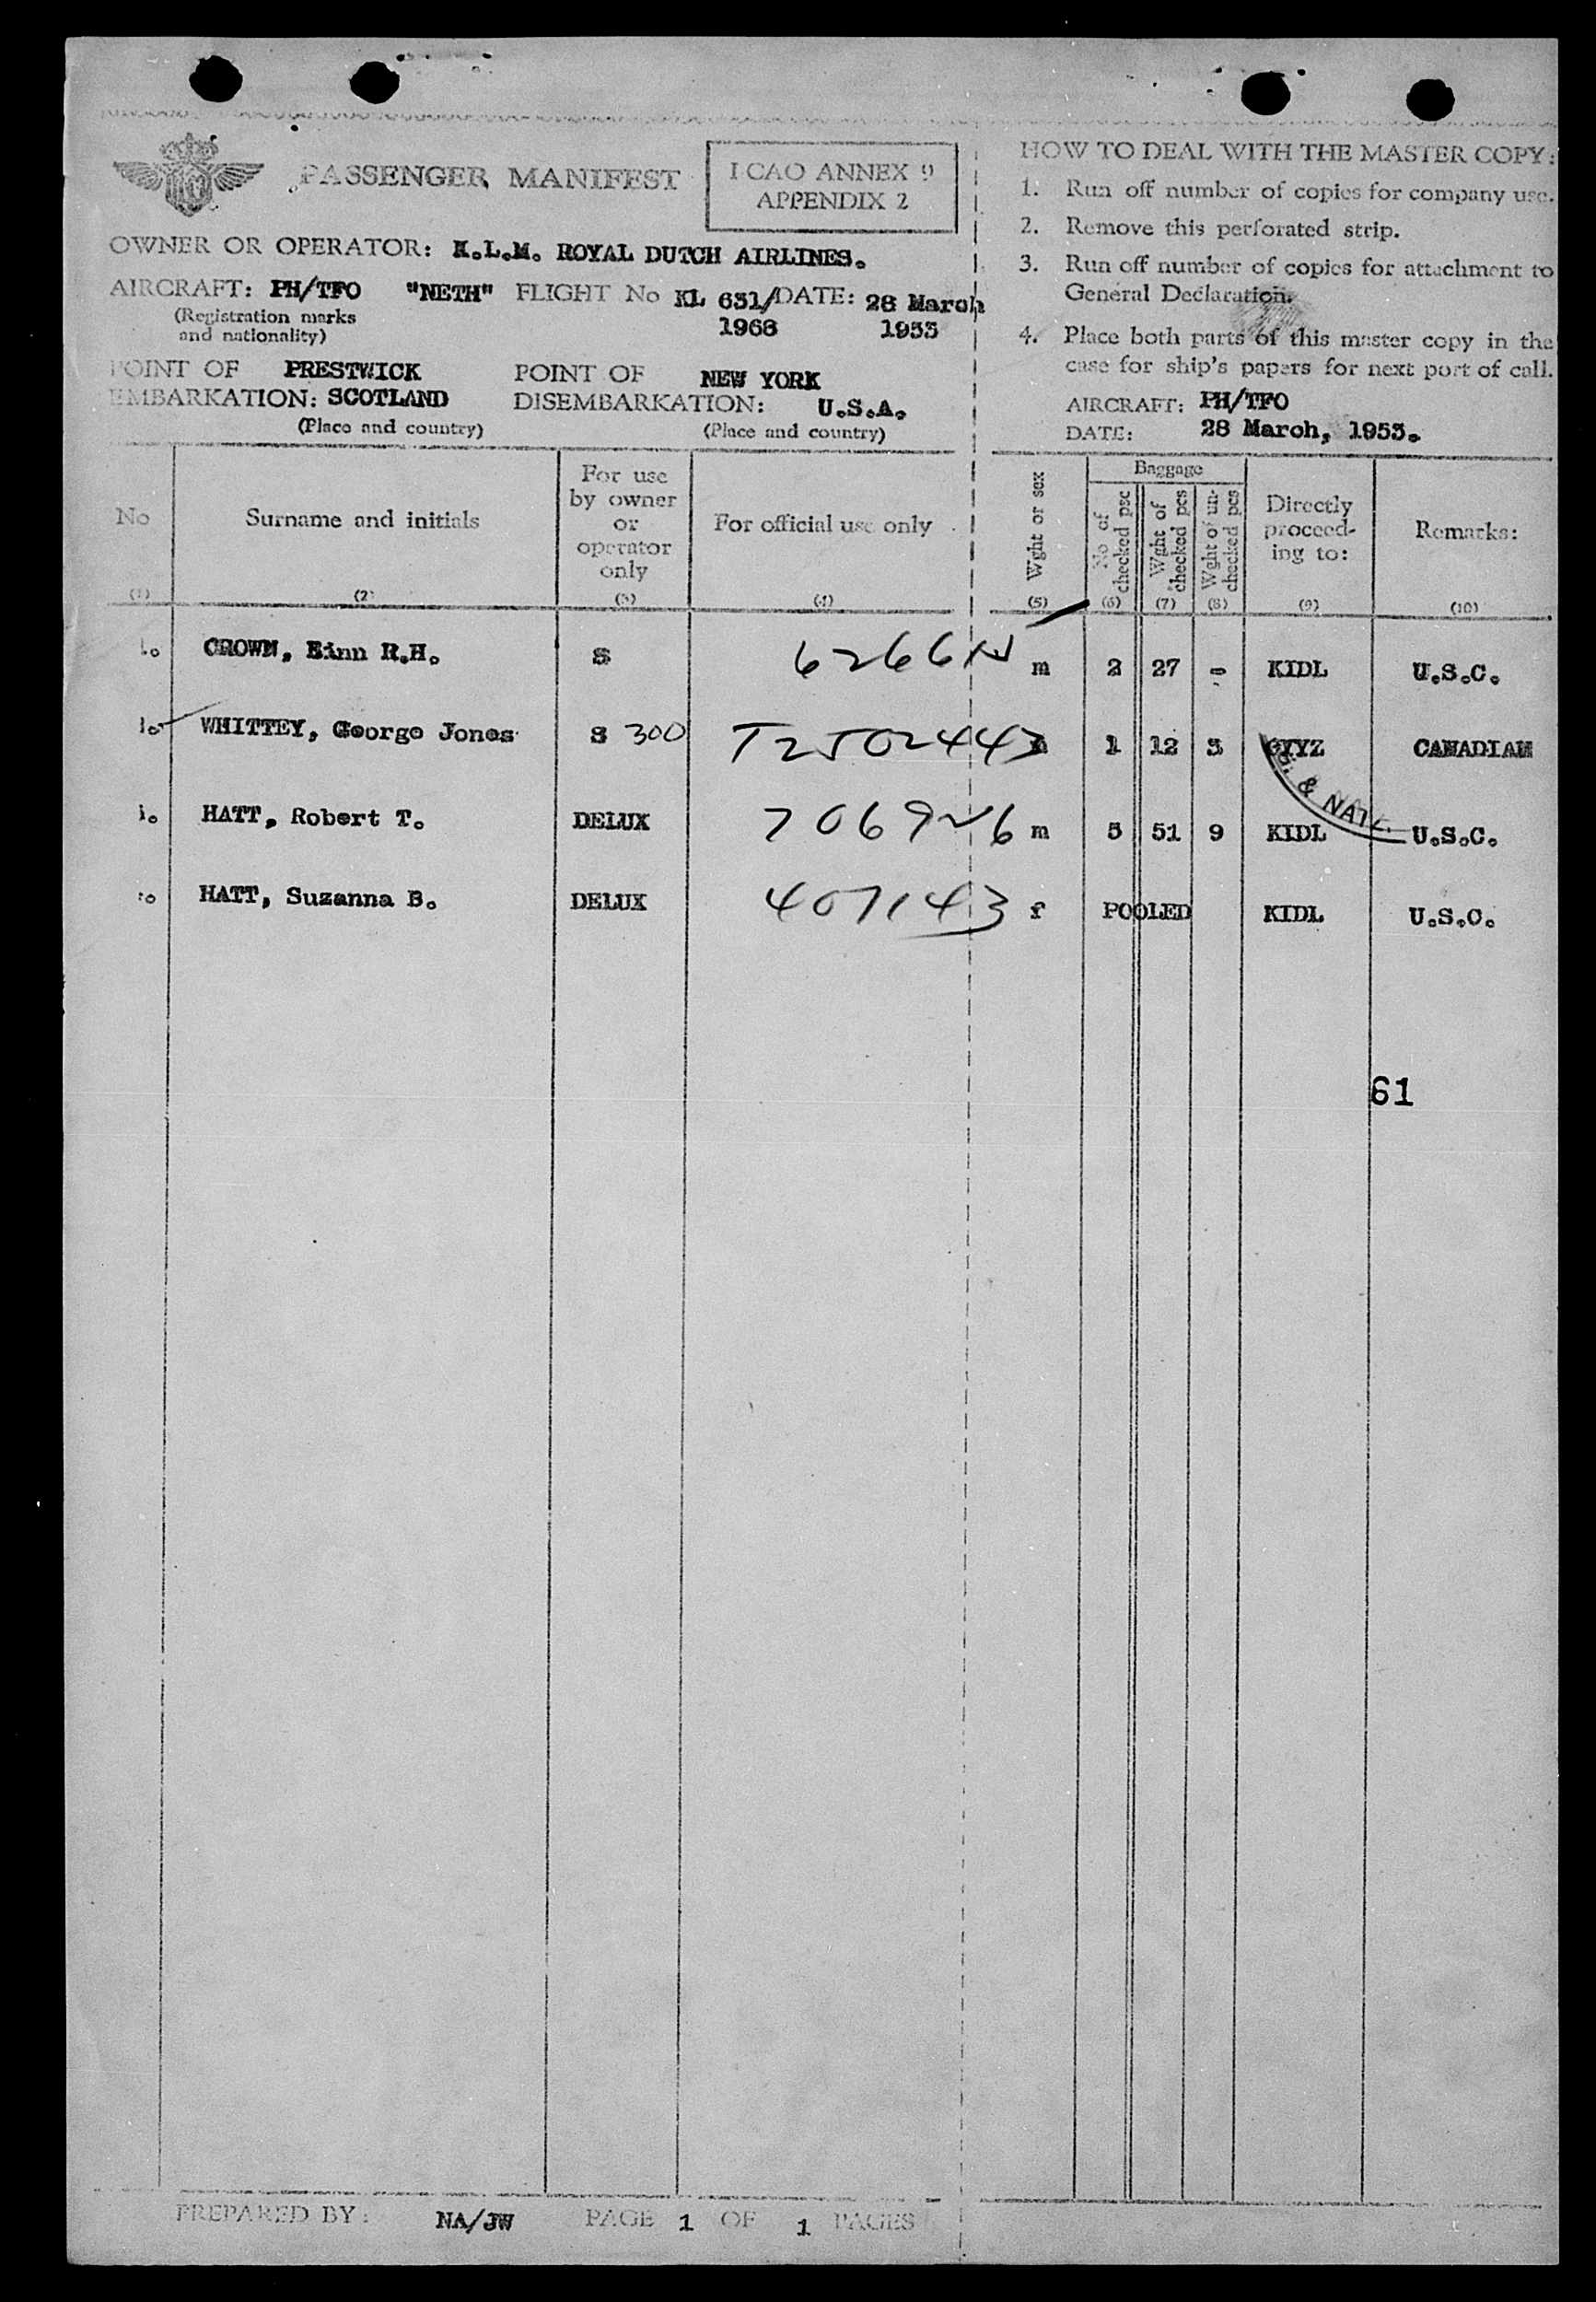 PASSENGER MANIFEST
I CAO ANNEX 9
APPENDIX 2
OWNER OR OPERATOR: K.L.M. ROYAL DUTCH AIRLINES.
AIRCRAFT: PH/TFO "NETH" FLIGHT No KL 631/ DATE: 28 March
(Registration marks 1968 1953
and nationality)
POINT OF PRESTWICK POINT OF NEW YORK
EMBARKATION: SCOTLAND DISEMBARKATION: U.S.A.
(Place and country) (Place and country)
HOW TO DEAL WITH THE MASTER COPY:
1. Run off number of copies for company use.
2. Remove this perforated strip.
3. Run off number of copies for attachment to
General Declaration.
4. Place both parts of this master copy in the
case for ship's papers for next port of call.
AIRCRAFT: PH/TFO
DATE: 28 March, 1953.
No
(1)
Surname and initials
(2)
For use
by owner
or
operator
only
(3)
For official use only
(4)
Wght or sex
(5)
Baggage
No of
checked psc
(6)
Wght of
checked pcs
(7)
Wght of un-
checked pcs
(8)
Directly
proceed-
ing to:
(9)
Remarks:
(10)
1. CROWN, R.H. S 6266 m 2 27 - KIDL U.S.C.
1. WHITTEY, George Jones S 300 T2502443 1 12 3 CYYZ CANADIAN
1. HATT, Robert T. DELUX 706926 m 5 51 9 KIDL U.S.C.
HATT, Suzanna B. DELUX 407143 f POOLED KIDL U.S.C.
& NATZ.
61
PREPARED BY: NA/JW PAGE 1 OF 1 PAGES